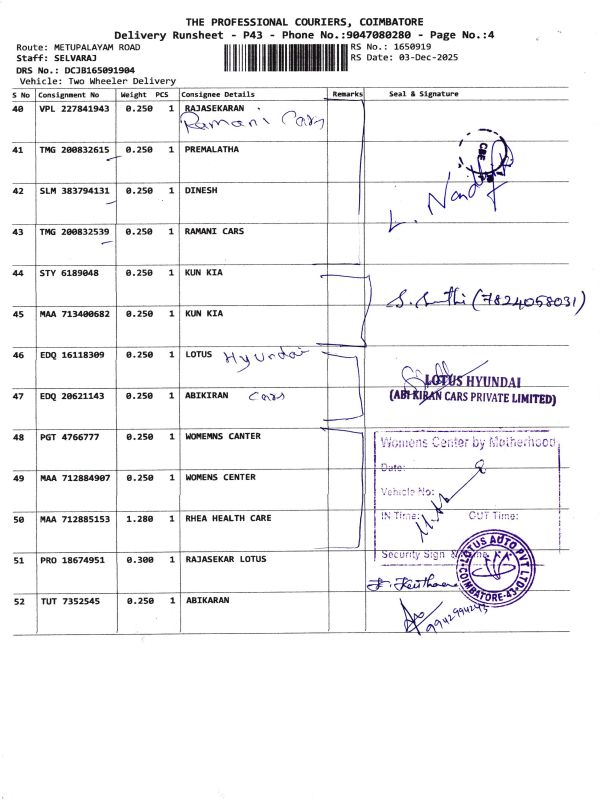 THE PROFESSIONAL COURIERS, COIMBATORE
Delivery Runsheet - P43 - Phone No.:9047080280 - Page No.:4
Route: METUPALAYAM ROAD RS No.: 1650919
Staff: SELVARAJ RS Date: 03-Dec-2025
DRS No.: DCJB165091904
Vehicle: Two Wheeler Delivery
S No Consignment No Weight PCS Consignee Details Remarks Seal & Signature
40 VPL 227841943 0.250 1 RAJASEKARAN
Ramani Cars
41 TMG 200832615 0.250 1 PREMALATHA
CBE
42 SLM 383794131 0.250 1 DINESH
43 TMG 200832539 0.250 1 RAMANI CARS
44 STY 6189048 0.250 1 KUN KIA
(7824058031)
45 MAA 713400682 0.250 1 KUN KIA
46 EDQ 16118309 0.250 1 LOTUS Hyundai
LOTUS HYUNDAI
47 EDQ 20621143 0.250 1 ABIKIRAN Cars
(ABI KIRAN CARS PRIVATE LIMITED)
48 PGT 4766777 0.250 1 WOMEMNS CANTER
Womens Center by Motherhood
Date:
49 MAA 712884907 0.250 1 WOMENS CENTER
Vehicle No:
50 MAA 712885153 1.280 1 RHEA HEALTH CARE
IN Time: OUT Time:
51 PRO 18674951 0.300 1 RAJASEKAR LOTUS
Security Sign &
LOTUS AUTO PVT LTD
COIMBATORE-43
52 TUT 7352545 0.250 1 ABIKARAN